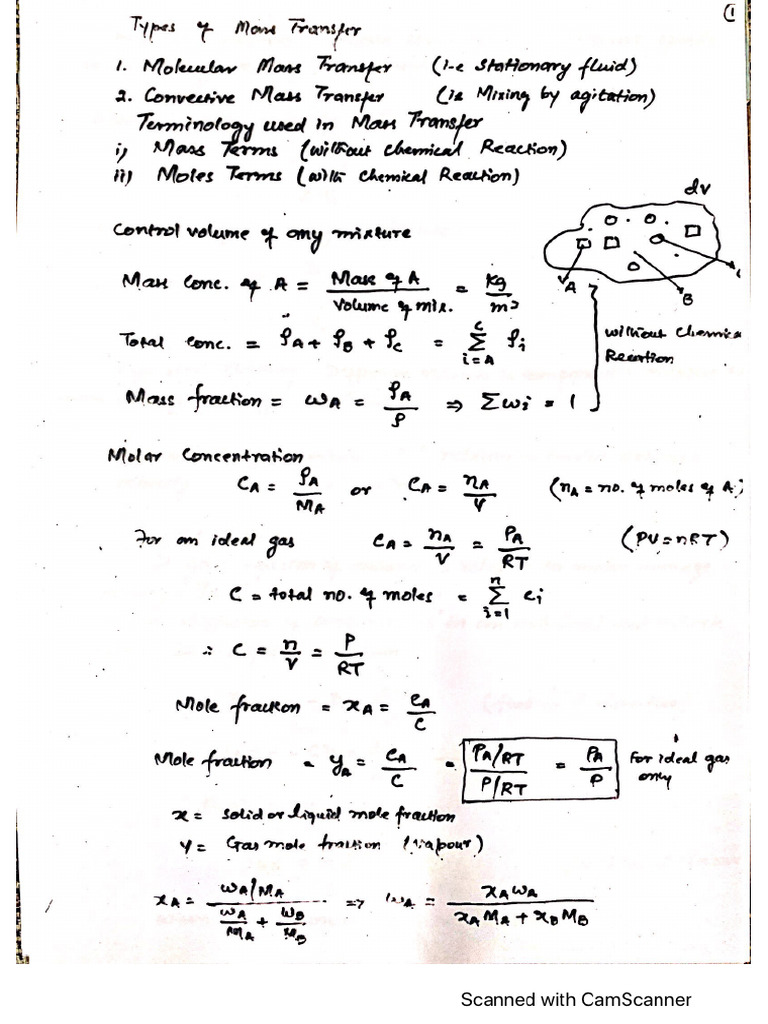 ①
Types of Mass Transfer
1. Molecular Mass Transfer (i-e stationary fluid)
2. Convective Mass Transfer (ie Mixing by agitation)
Terminology used in Mass Transfer
i) Mass Terms (without chemical Reaction)
ii) Moles Terms (with chemical Reaction)
dv
Control volume of any mixture
A
B
Mass Conc. of A = Mass of A / Volume of mix. = kg / m³
Total conc. = ρA + ρB + ρC = Σ_{i=A}^{C} ρi
without Chemica
Reaction
Mass fraction = ωA = ρA / ρ ⇒ Σωi = 1
Molar Concentration
CA = ρA / MA or CA = nA / V (nA = no. of moles of A;
For an ideal gas CA = nA / V = PA / RT (PV = nRT)
C = total no. of moles = Σ_{i=1}^{n} ci
∴ C = n / V = P / RT
Mole fraction = xA = CA / C
Mole fraction = yA = CA / C = PA/RT / P/RT = PA / P For ideal gas
only
x = solid or liquid mole fraction
y = Gas mole fraction (vapour)
xA = ωA/MA / (ωA/MA + ωB/MB) ⇒ ωA = xA ωA / (xA MA + xB MB)
Scanned with CamScanner